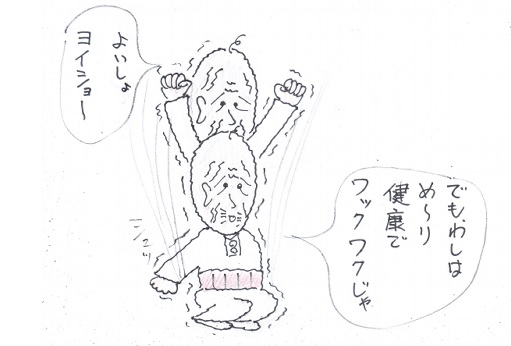 よいしょ
ヨイショー
でも、わしは
め〜り
健康で
ワック ワクじゃ
シュッ